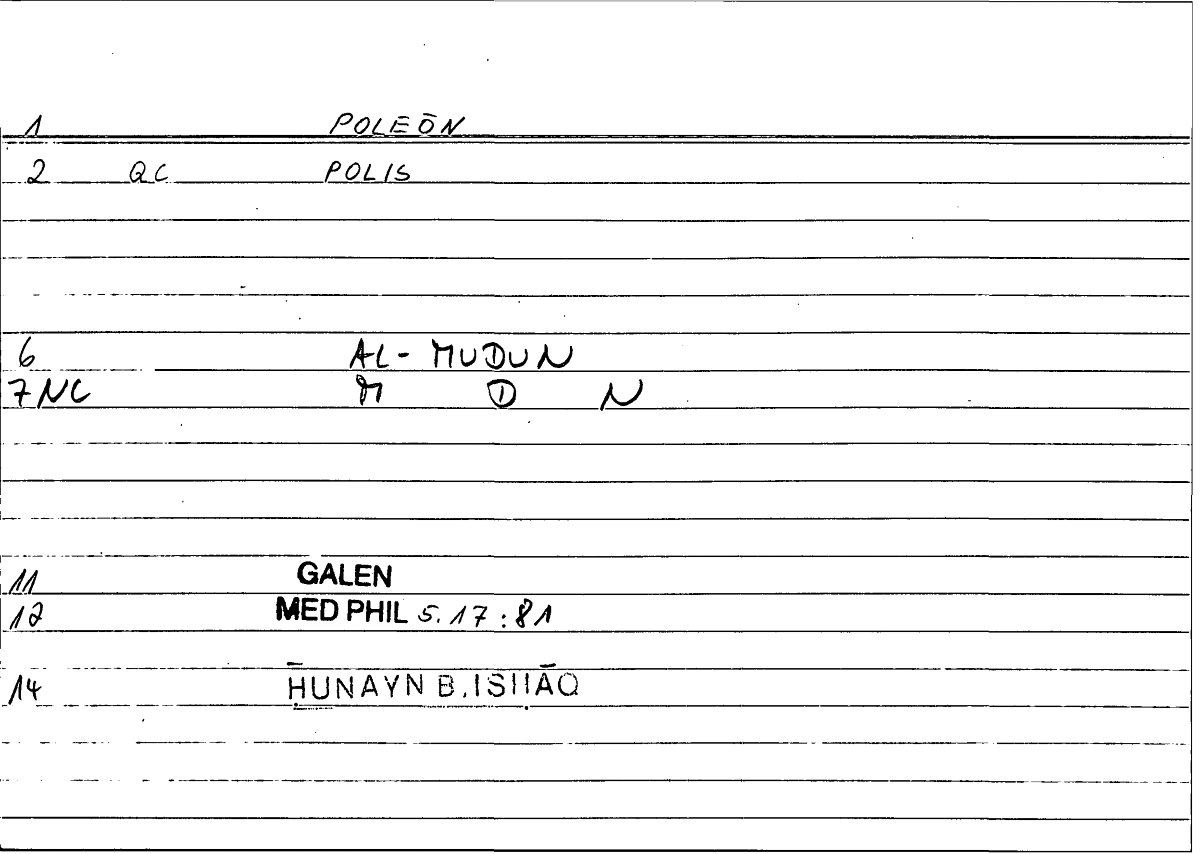 1 POLEŌN
2 QC POLIS
6 AL-MUDUN
7 NC M D N
11 GALEN
12 MED PHIL 5.17:81
14 ḤUNAYN B. ISḤĀQ